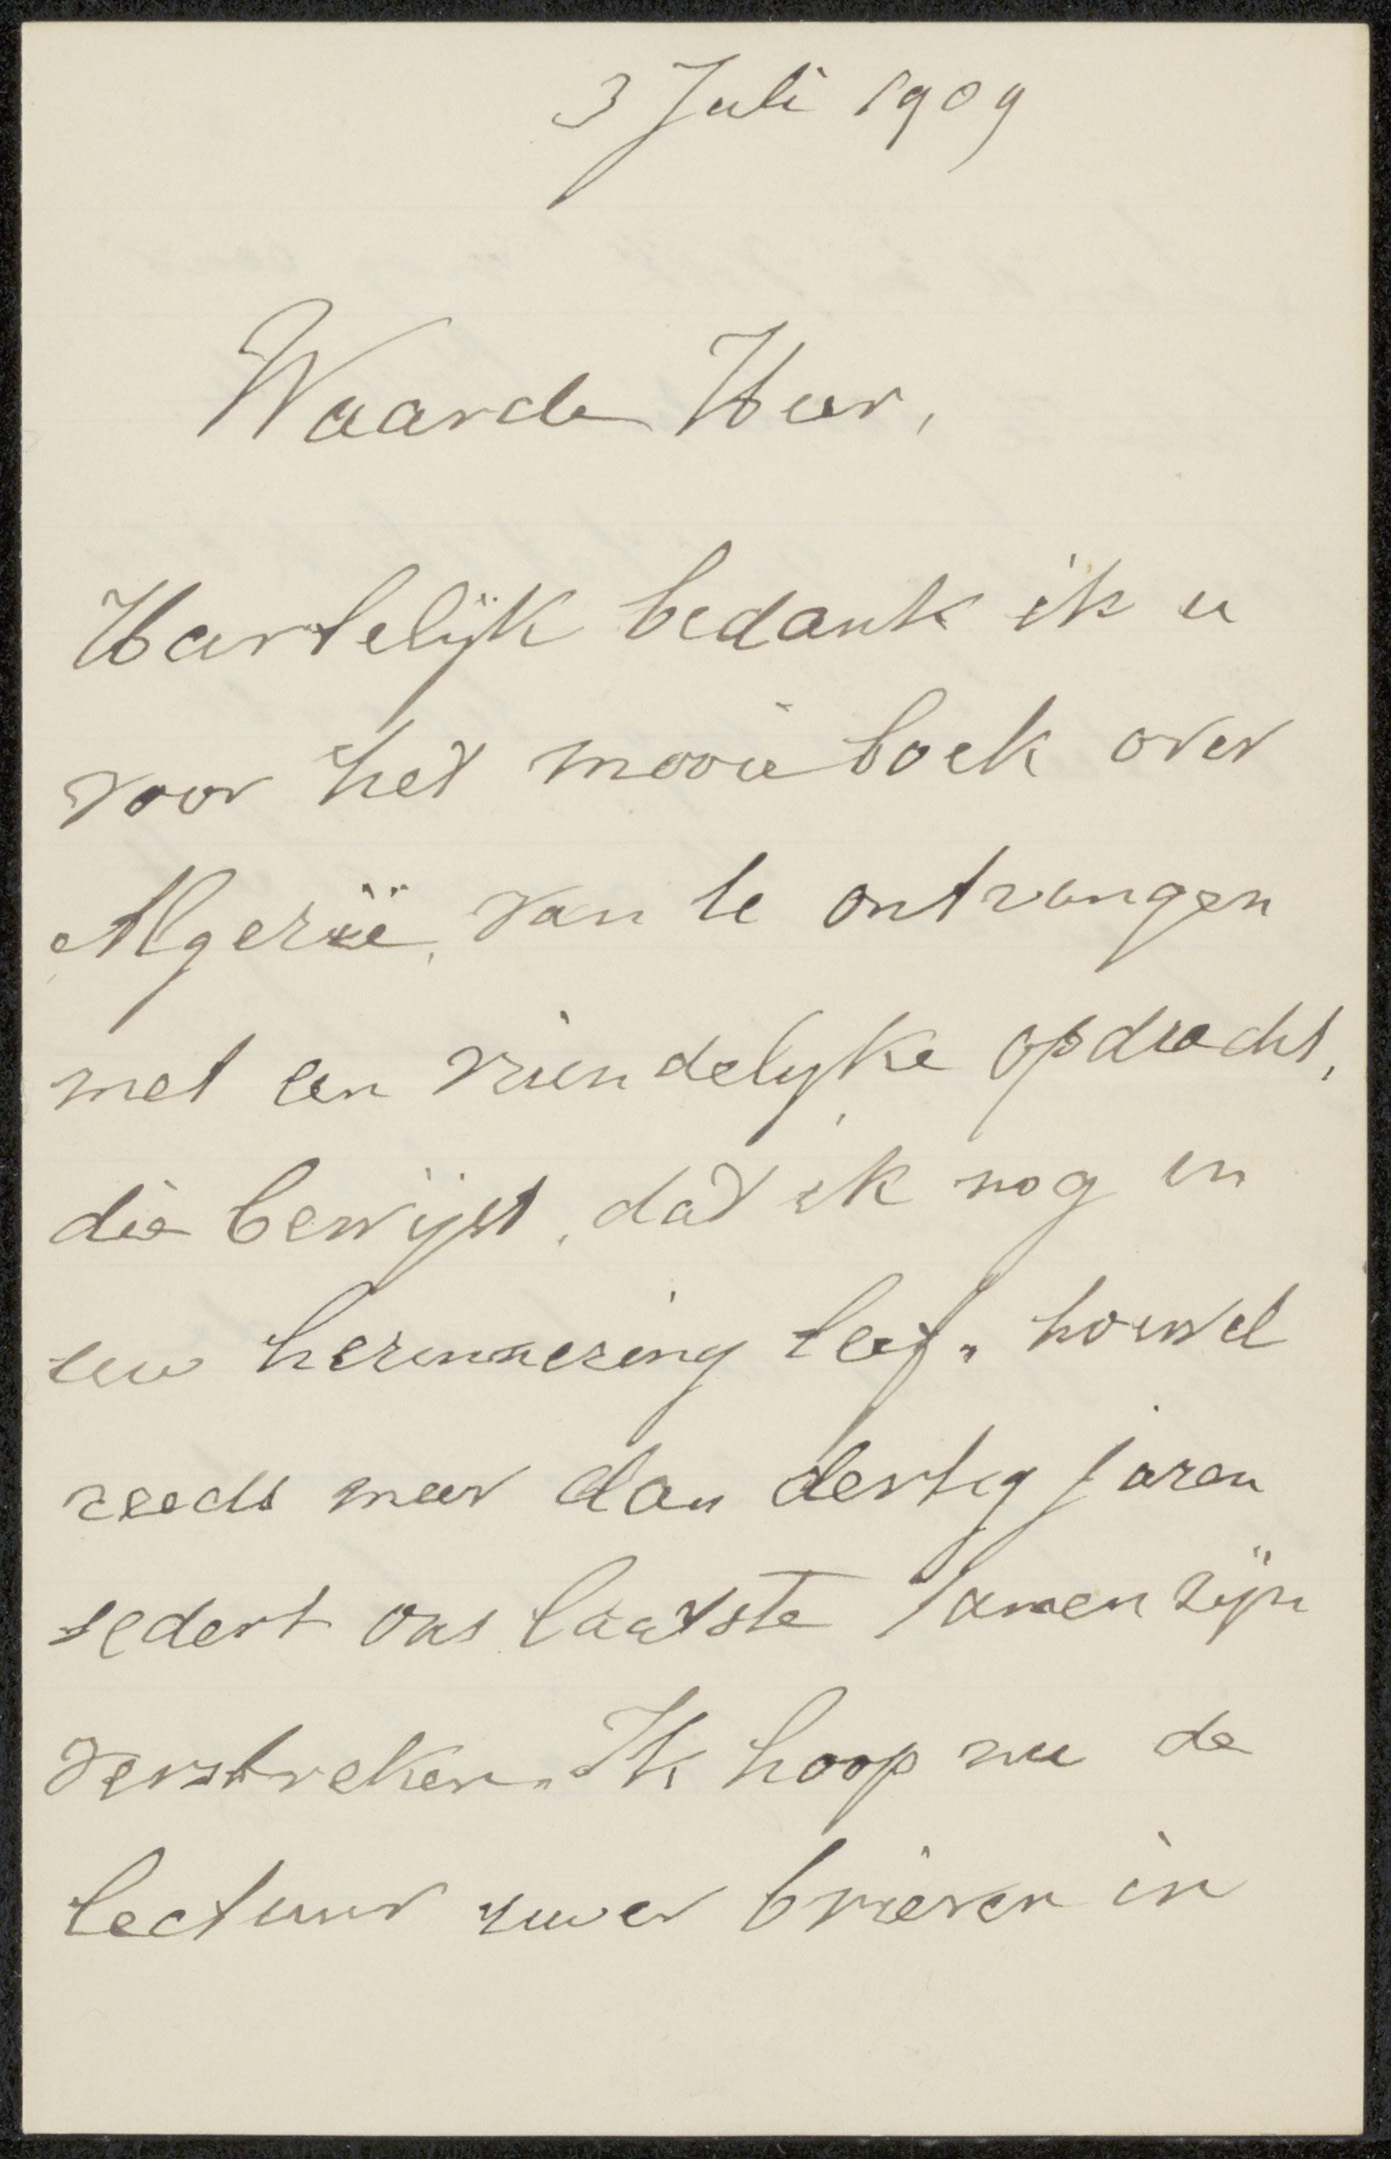 3 Juli 1909
Waarde Heer,
Hartelijk bedank ik u
voor het mooie boek over
Algerië, van te ontvangen
met een vriendelijke opdracht,
die bewijst, dat ik nog in
uw herinnering leef, hoewel
reeds meer dan dertig jaren
sedert ons laatste samenzijn
verstreken. Ik hoop nu de
lectuur uwer brieven in